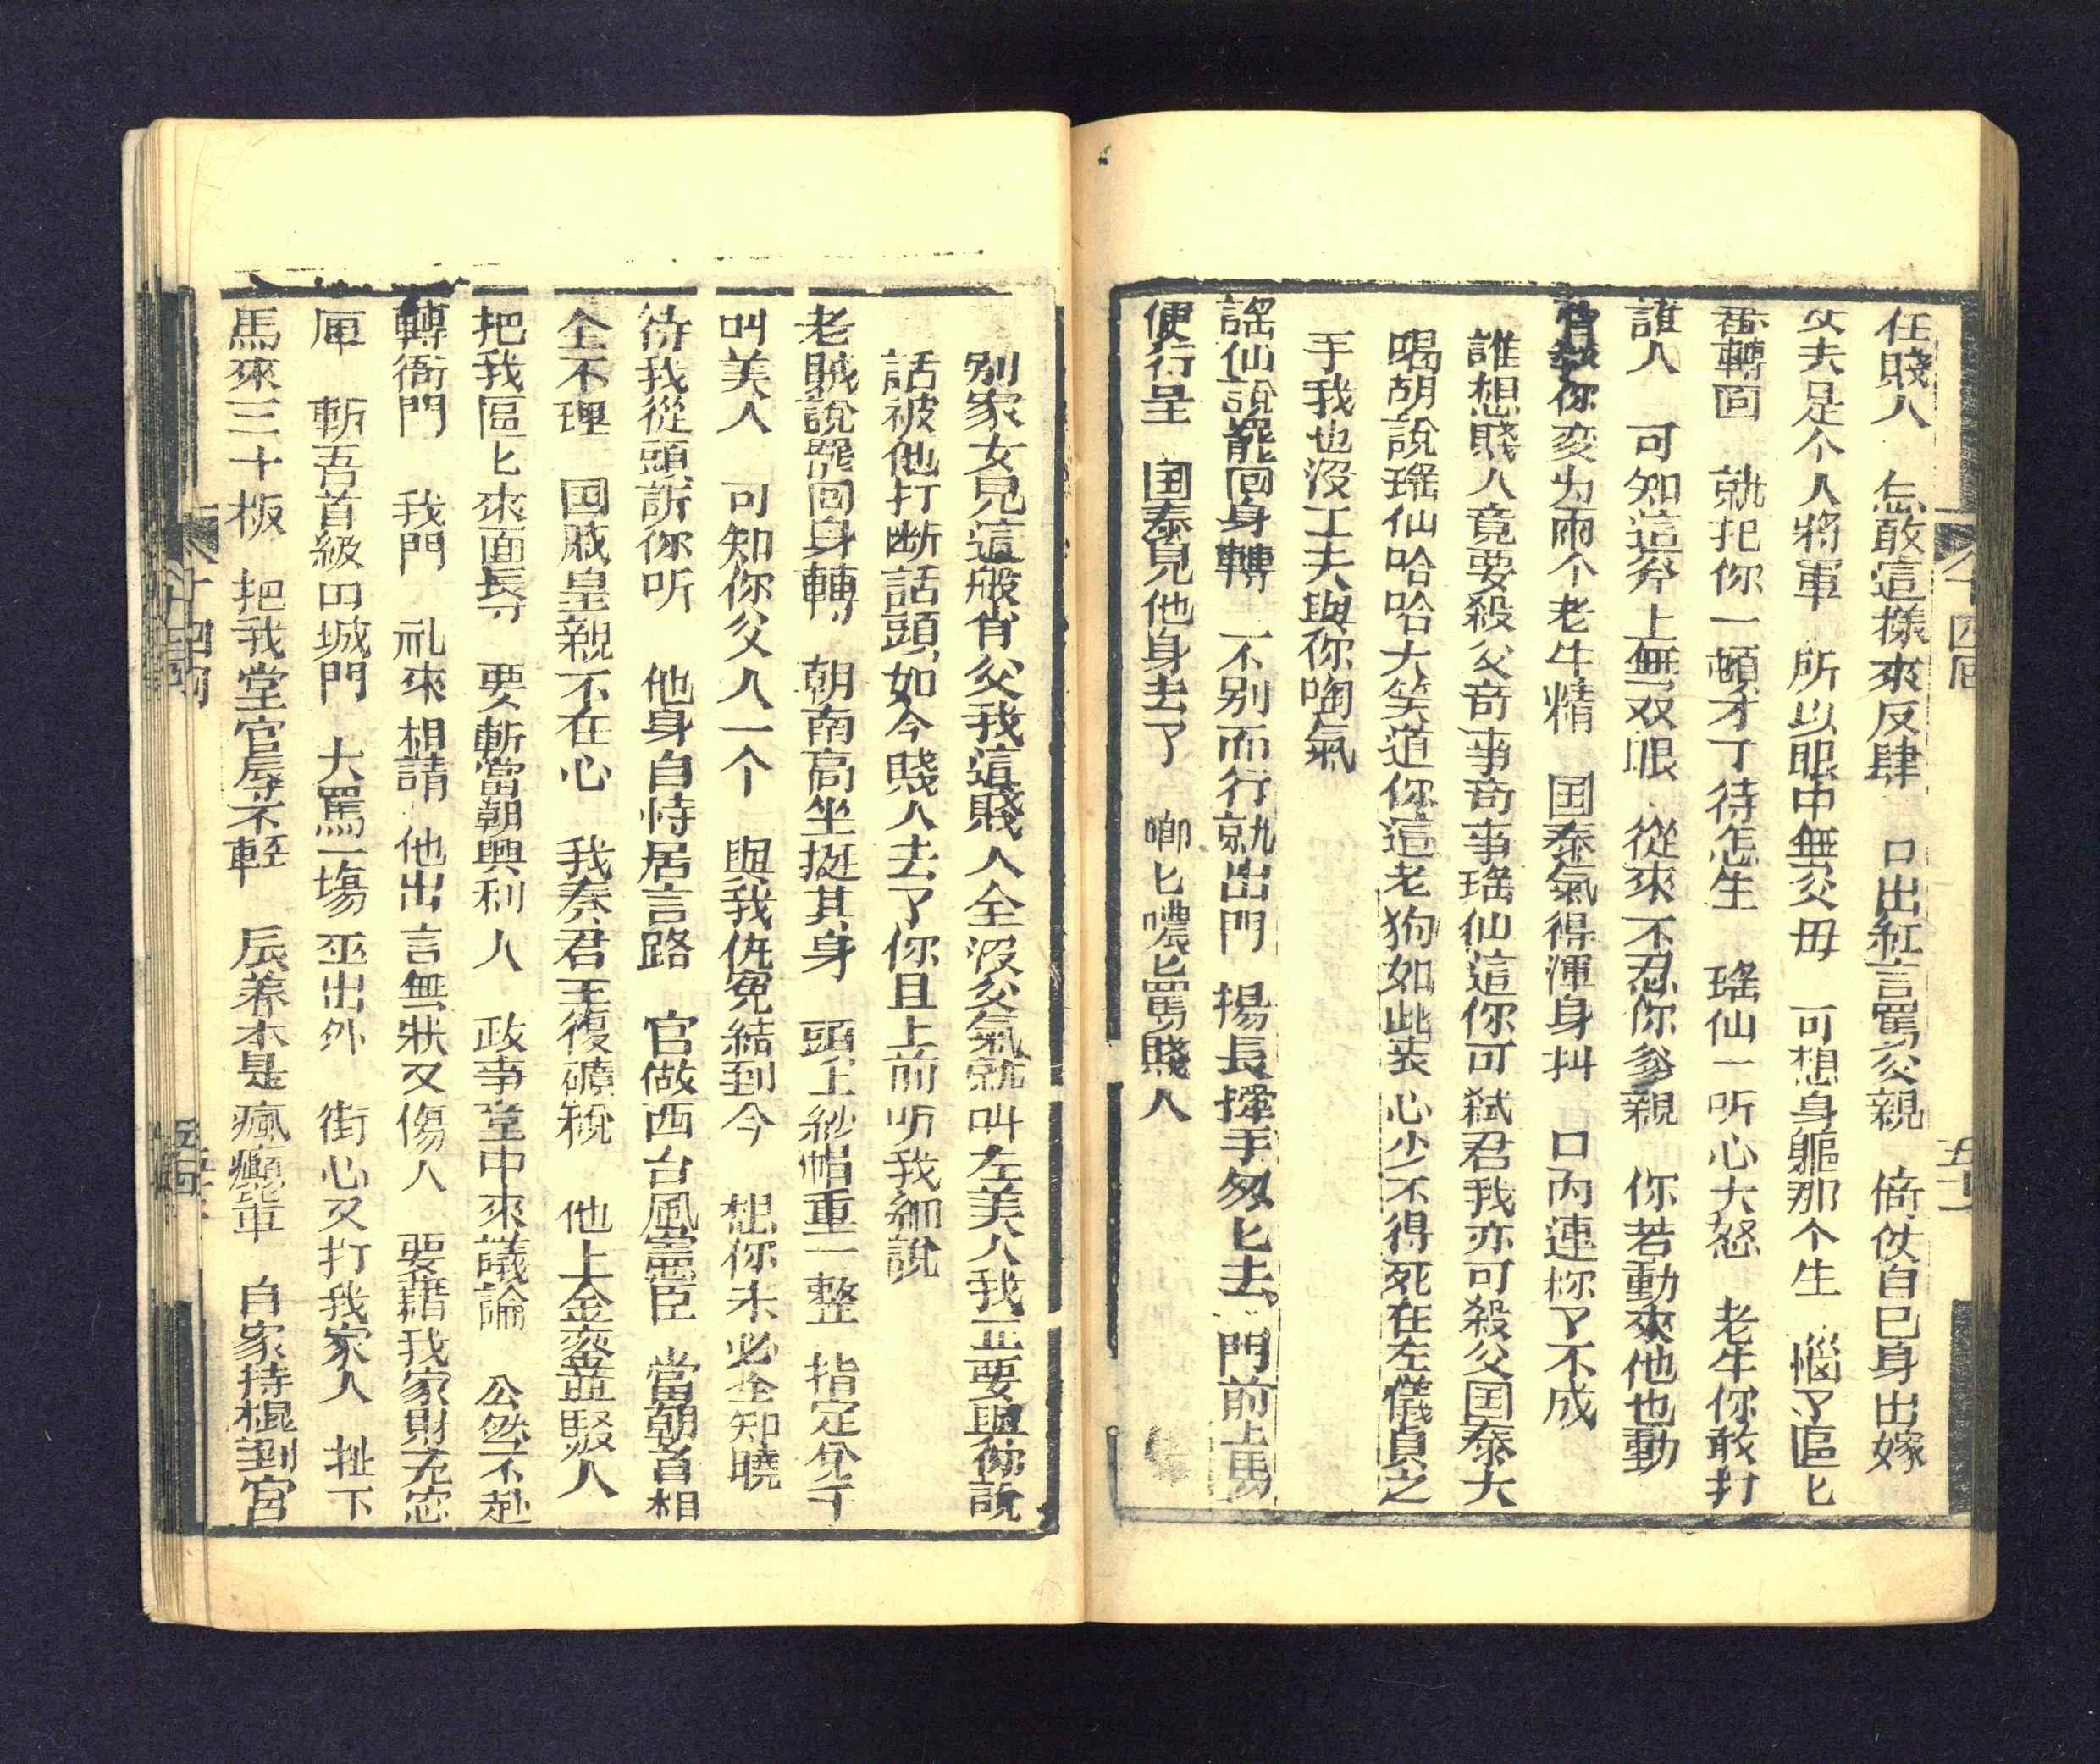 在賤人　怎敢這樣來反肆　口出紅言罵父親　倚仗自已身出嫁
丈夫足个人將軍　所以眼中無父毋　可想身軀那个生　惱了區匕
番轉回　就把你一頓才了待怎生　瑤仙一听心大怒　老牛你敢打
誰人　可知這界上無双眼　從來不忍你爹親　你若動來他也動
管教你変为兩个老牛精　国泰氣得渾身抖　口內連称了不成
誰想賤人竟要殺父奇事奇事瑤仙這你可弑君我亦可殺父国泰大
喝胡說瑤仙哈哈大笑道你這老狗如此丧心少不得死在左儀貞之
手我也没工夫與你啕氣
謡仙說罷回身轉　不别而行就出門　揚長揮手匆匕去　門前上馬
便行呈　国泰見他身去了　啷匕噥匕罵賤人
别家女兒這般肖父我這賤人全沒父氣就叫左美人我正要與你說
話被他打断話頭如今賤人去了你且上前听我細說
老賊說罷回身轉　朝南高坐挺其身　頭上紗帽重一整　指定釵千
叫美人　可知你父人一个　與我仇冤結到今　想你未必全知曉
待我從頭訴你听　他身自恃居言路　官做西台風憲臣　當朝首相
全不理　国戚皇親不在心　我奏君王復礦稅　他上金鑾駁人
把我區匕來面辱　要斬當朝興利人　政事堂中來議論　公然不赴
轉衙門　我門　礼來相請　他出言無狀又傷人　要藉我家財充恋
庫　斬吾首級囬城門　大罵一塲巫出外　街心又打我家人　扯下
馬來三十板　把我堂官辱不輕　辰養本是瘋癲輩　自家持棍到宮
十四囘
十四囘